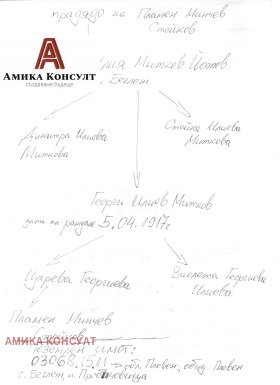 прадядо на Пламен Минчев
Стойков
АМИКА КОНСУЛТ
създаваме бъдеще
Митков Йотов
Беглеж
Димитра Илиева
Миткова
Стойна Илиева
Миткова
Георги Илиев Митков
дата на раждане 5.04.1917г
Царева Георгиева
Виолета Георгиева
Илиева
Пламен Минчев
АМИКА КОНСУЛТ
Поземлен имот:
03068.15.11 → обл. Плевен, общ. Плевен
с. Беглеж, м.